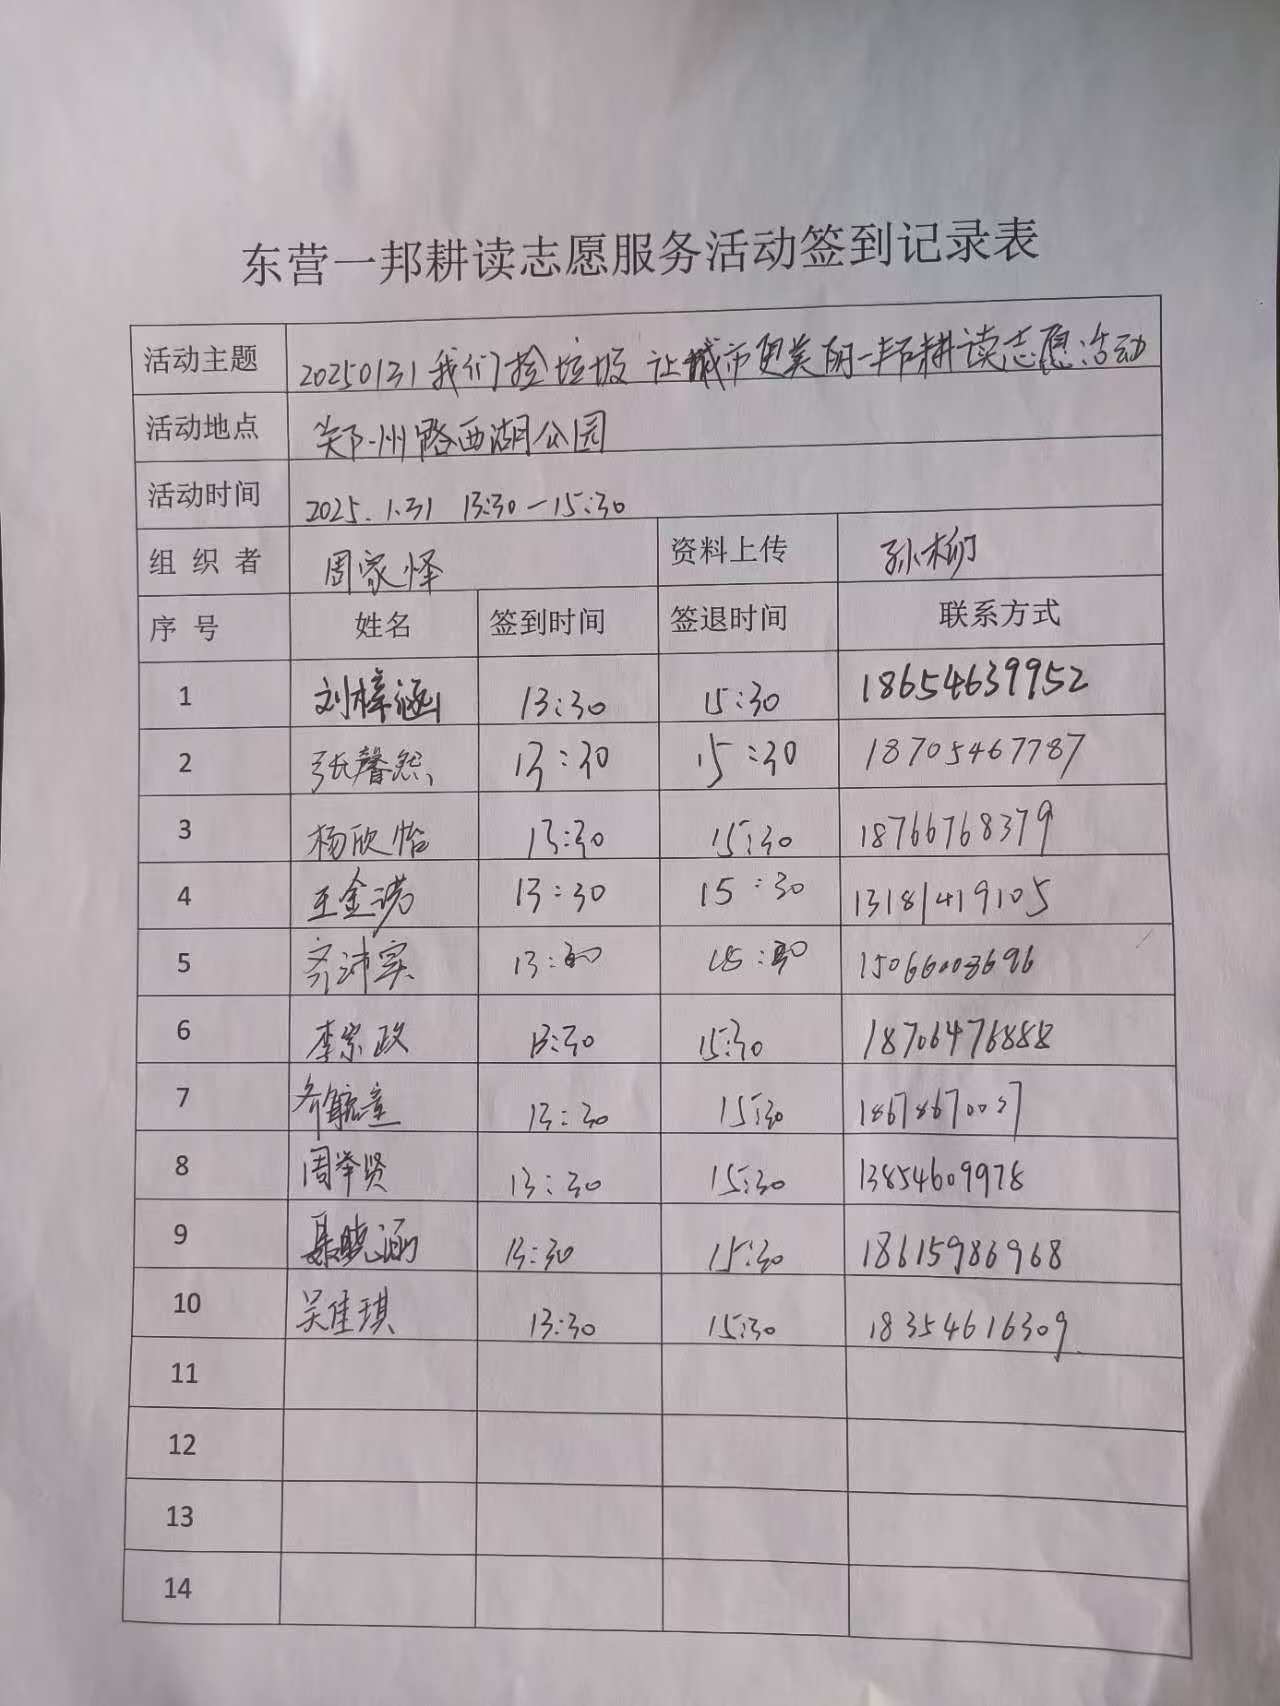 东营一邦耕读志愿服务活动签到记录表
活动主题 20250131我们捡垃圾 让城市更美丽一邦耕读志愿活动
活动地点 郑州路西湖公园
活动时间 2025.1.31 13:30－15:30
组织者 周家怿 资料上传 孙柳
序号 姓名 签到时间 签退时间 联系方式
1 刘梓涵 13:30 15:30 18654639952
2 张馨 13:30 15:30 18705467787
3 杨欣怡 13:30 15:30 18766768379
4 王金诺 13:30 15:30 13181419105
5 齐沛实 13:30 15:30 15066008696
6 李宗政 13:30 15:30 18706476888
7 齐航 13:30 15:30
8 周举贤 13:30 15:30 13854609978
9 聂晓涵 13:30 15:30 18615986968
10 吴佳琪 13:30 15:30 18354616309
11
12
13
14